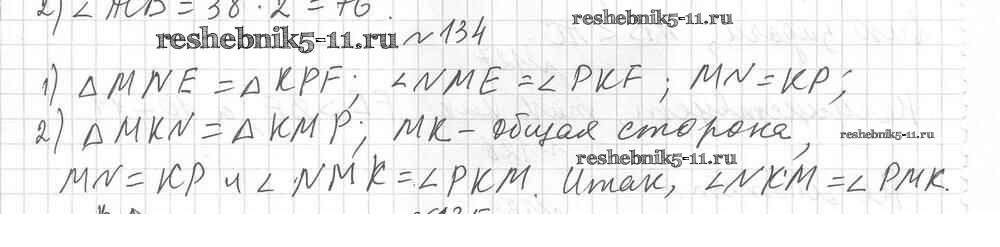 2) ∠ACB = 38 · 2 = 76.
reshebnik5-11.ru
reshebnik5-11.ru №134
1) △MNE = △KPF; ∠NME = ∠PKF; MN = KP;
2) △MKN = △KMP; MK – общая сторона,
reshebnik5-11.ru
reshebnik5-11.ru
MN = KP и ∠NMK = ∠PKM. Итак, ∠NKM = ∠PMK.